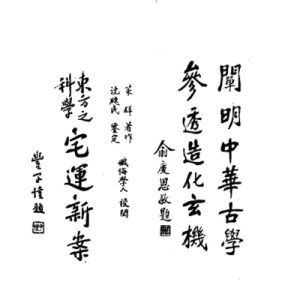 闡明中華古學
參透造化玄機
俞慶恩敬題
策群著作
沈瓞民鑒定
懺悔學人校閱
東方之
科學
宅運新案
豐子愷題